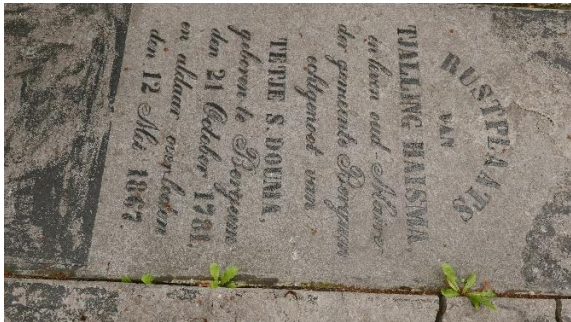 RUSTPLAATS
VAN
TJALLING HAISMA
in leven oud-Maire
der gemeente Bergum
echtgenoot van
TETJE S. DOUMA
geboren te Bergum
den 21 October 1781,
en aldaar overleden
den 12 Mei 1867